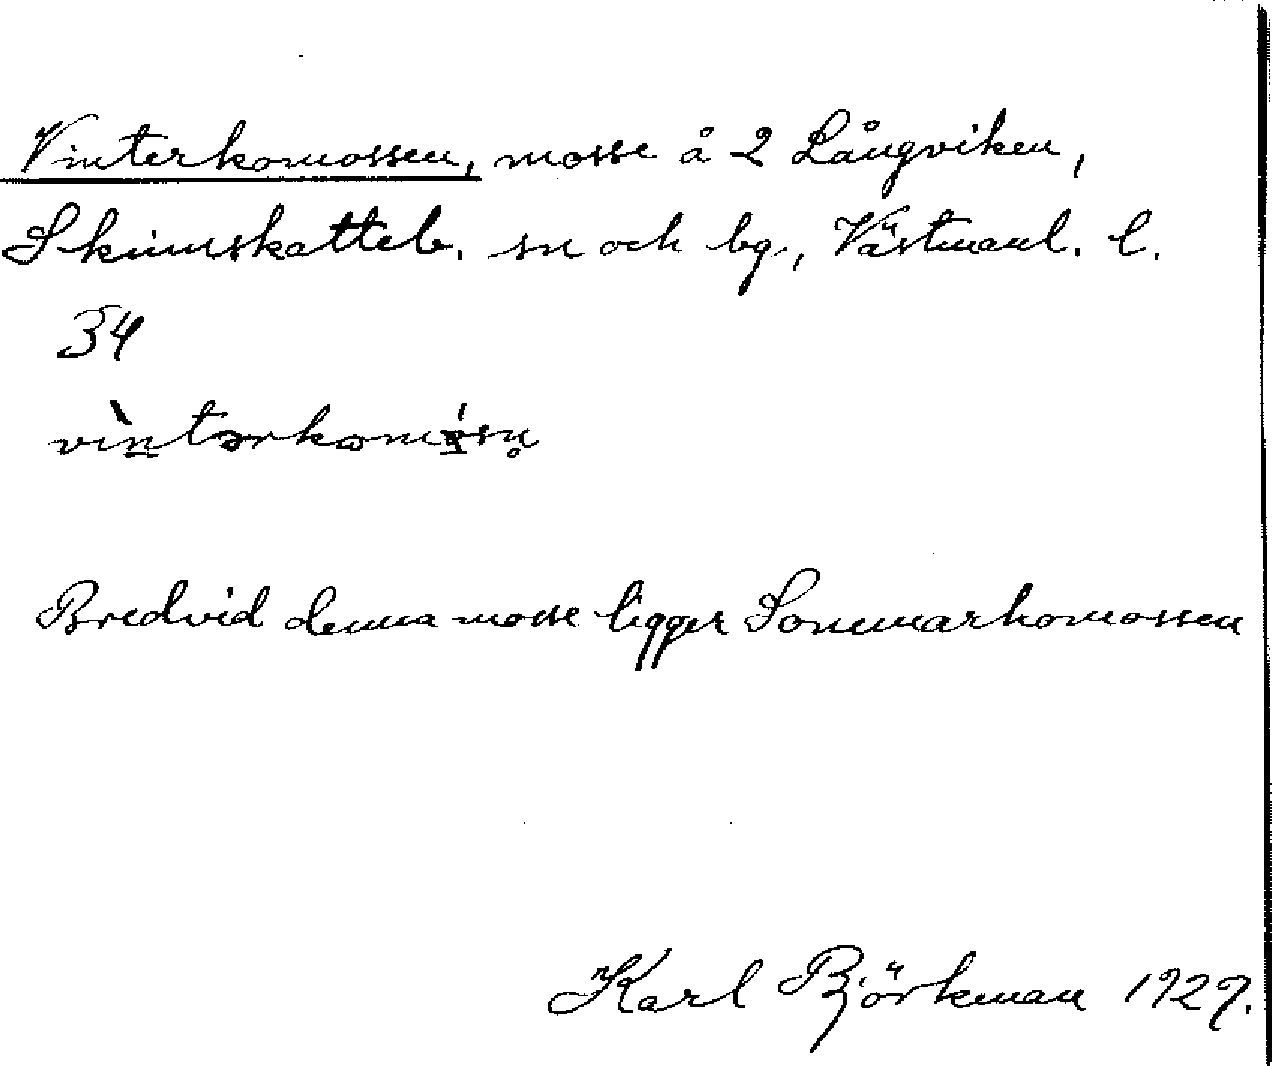 Vinterkomossen, mosse å 2 Långviken,
Skinnskatteb. sn och bg., Västmanl. l.
34
vìntərkomósn̥
Bredvid denna mosse ligger Sommarkomossen
Karl Björkman 1929.